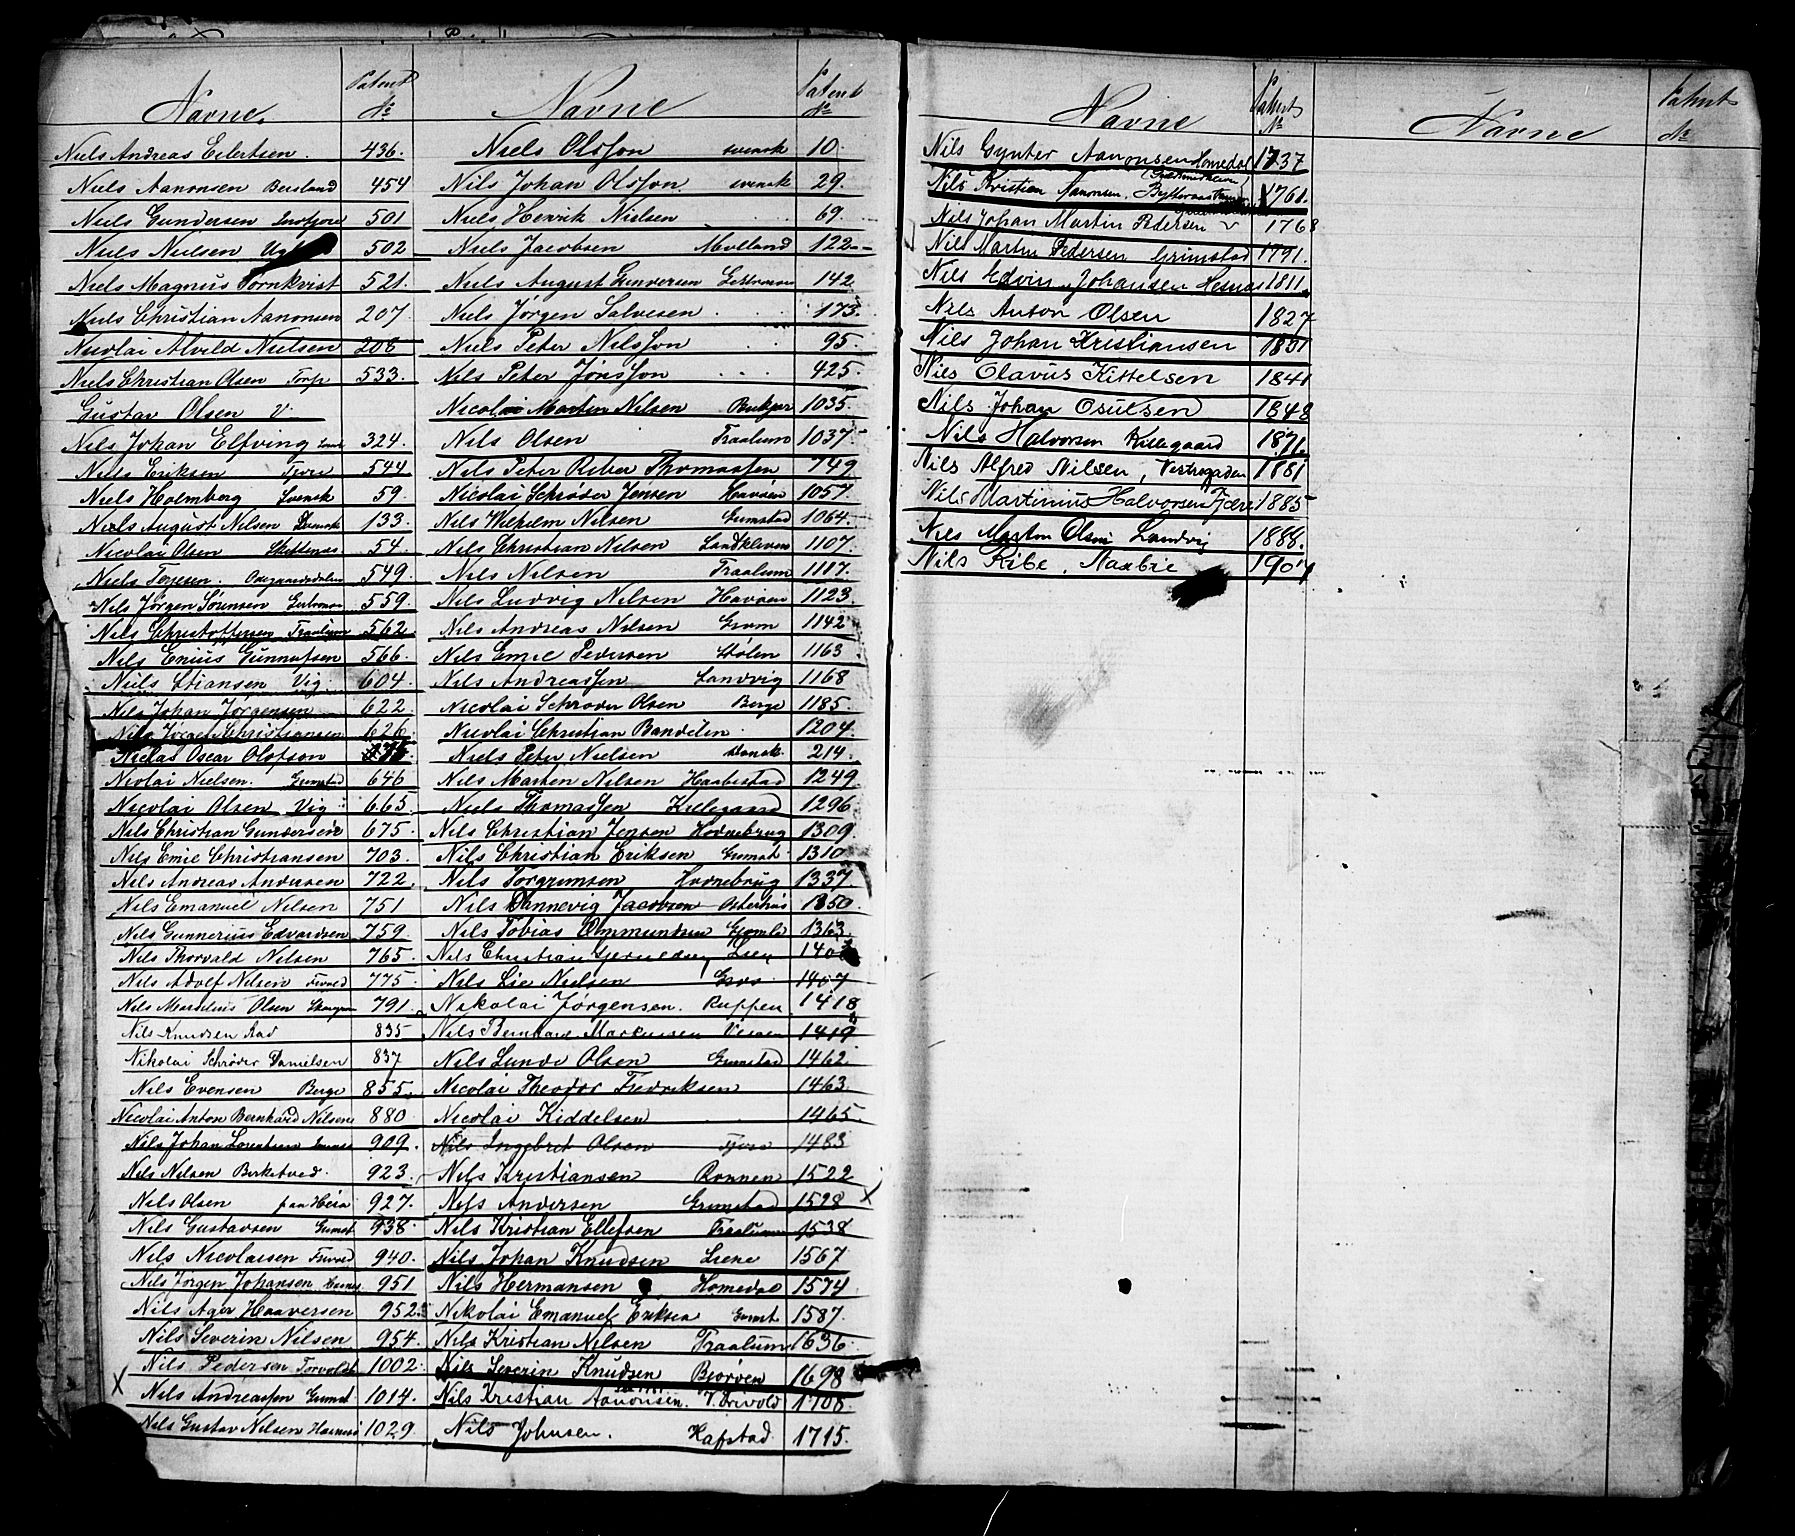 Navne. Patent №
Niels Andreas Eilertsen. 436.
Niels Aanonsen Beisland 454
Niels Gundersen 501
Niels Nielsen 502
Niels Magnus Tornkvist 521.
Niels Christian Aanonsen 207
Nicolai Alvild Nielsen 208
Niels Christian Olsen Torp 533.
Gustav Olsen V
Nils Johan Elfving 324.
Nils Eriksen Fjære 544
Niels Holmberg Svensk 59.
Niels August Nilsen Svensk 133.
Nicolai Olsen 54.
Niels Terjesen. 549.
Nils Jørgen Sørensen 559.
Nils Christoffersen Traalum 562
Nils Enius Gunnufsen 566.
Niels Stiansen Vig 604.
Nils Johan Jørgensen 622.
Nils Jørgen Christiansen 626
Niclas Oscar Olofson
Nicolai Nielsen. Grimstad 646
Nicolai Olsen Vig 665.
Nils Christian Gundersen 675.
Nils Emil Christiansen 703.
Nils Andreas Andersen 722.
Nils Emanuel Nilsen 751
Nils Gunnerius Edvardsen 759.
Nils Thorvald Nilsen 765.
Nils Adolf Nilsen 775.
Nils Mardelius Olsen 791.
Nils Knudsen Rad 835
Nikolai Schrøder Danielsen 837
Nils Evensen Berge 855.
Nicolai Anton Bernhard Nilsen 880
Nils Johan Lorentsen 909.
Nils Nilsen Birketved. 923
Nils Olsen 927.
Nils Gustavsen Grimst. 938.
Nils Nicolaisen 940.
Nils Jørgen Johansen 951
Nils Ager Haaversen 952.
Nils Severin Nilsen 954.
Nils Pedersen 1002.
X Nils Andreassen Grimst 1014.
Nils Gustav Nilsen 1029.
Navne Patent №
Niels Olsson svensk 10.
Nils Johan Olsson svensk 29.
Nils Henrik Nielsen 69.
Niels Jacobsen Molland 122
Nils August Gundersen 142.
Nils Jørgen Salvesen 173.
Niels Peter Nilsson 95.
Nils Peter Jönsson 425.
Nicolai Martin Nilsen 1035.
Nils Olsen Traalum 1037
Nils Peter Reber Thomassen 749
Nicolai Schrøder Jensen Havsøen 1057.
Nils Wilhelm Nilsen Grimstad 1064.
Nils Christian Nilsen Landkleven 1107.
Nils Nilsen Traalum 1117.
Nils Ludvig Nilsen Havsøen 1123
Nils Andreas Nilsen Grom 1142
Nils Emil Pedersen Stølen 1163
Nils Andreassen Landvig 1168
Nicolai Schrøder Olsen Berge 1185.
Nicolai Christian Bandelin 1204
Niels Peter Nielsen dansk. 214.
Nils Marten Nilsen Haabestad 1249
Niels Thomassen Killegaard 1296.
Nils Christian Jensen Hodnebrug 1309.
Nils Christian Eriksen Grimst. 1310
Nils Torgrimsen Hodnebrug 1337.
Nils Dannevig Jacobsen Osterhus 1350.
Nils Tobias Ommundsen 1363.
Nils Christian 140
Nils Lie Nielsen Groos 1407
Nikolai Jørgensen. Ruppen 1418
Nils Bernhard Markussen 1419
Nils Lunde Olsen Grimstad 1462.
Nicolai Theodor Fredriksen 1463.
Nicolai Kiddelsen 1465.
Nils Ingebret Olsen Fjære 1483
Nils Kristiansen Rønnen 1522
Nils Andersen Grimstad 1528 X
Nils Kristian Ellefsen Traalum 1538
Nils Johan Knudsen Liene 1567
Nils Hermansen Homedal 1574
Nikolai Emanuel Eriksen Grimst 1587.
Nils Kristian Nilsen Traalum 1636.
Nils Severin Knudsen Bjorven 1698
Nils Kristian Aanonsen. 1708
Nils Johnsen. Hafstad 1715.
Navne Patent №
Nils Gynter Aanonsen Homedal 1737
Nils Kristian Aanonsen. 1761.
Nils Johan Martin Pedersen 1768
Nils Martin Pedersen Grimstad 1791.
Nils Edvin Johansen Hesnæs 1811.
Nils Anton Olsen 1827
Nils Johan Kristiansen 1831
Nils Olavus Kittelsen 1841
Nils Johan Osulsen 1848
Nils Halvorsen Killegaard 1871.
Nils Alfred Nilsen, Vestregaden 1881
Nils Martinius Halvorsen Fjære 1885
Nils Martin Olsen Landvig 1888.
Nils Ribe.
Navne Patent №